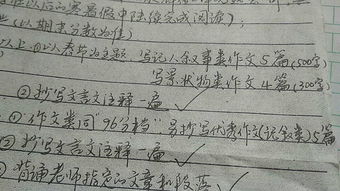 以后的寒暑假中陆续完成阅读);
(以期末分数为准)
以上:①以春节为主题 写记人叙事类作文5篇(500字)
写景状物类作文4篇(300字)
②抄写文言文注释一遍
①作文类同“96分档”另抄写优秀作文(记叙类)5篇
②抄写文言文注释一遍
背诵老师指定的文章和段落